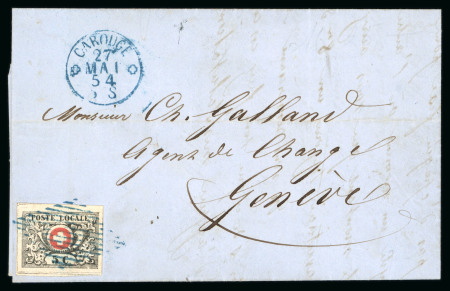 CAROUGE
27
MAI
54
Monsieur Ch. Galland
Agent de Change
Genève
POSTE LOCALE